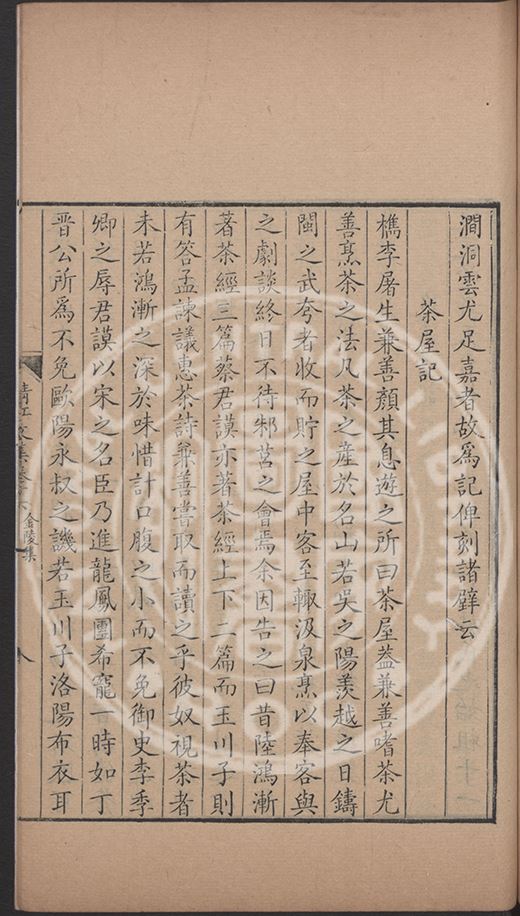 澗洞雲尤足嘉者故爲記俾刻諸壁云
茶屋記
檇李屠生兼善顏其息遊之所曰茶屋葢兼善嗜茶尤
善烹茶之法凡茶之產於名山若吳之陽羨越之日鑄
閩之武夸者收而貯之屋中客至輙汲泉烹以奉客與
之劇談終日不待邾莒之會焉余因告之曰昔陸鴻漸
著茶經三篇蔡君謨亦著茶經上下二篇而玉川子則
有答孟諫議惠茶詩兼善嘗取而讀之乎彼奴視茶者
未若鴻漸之深於味惜計口腹之小而不免御史李季
卿之辱君謨以宋之名臣乃進龍鳳團希寵一時如丁
晋公所爲不免歐陽永叔之譏若玉川子洛陽布衣耳
清江文集卷
金陵集
八